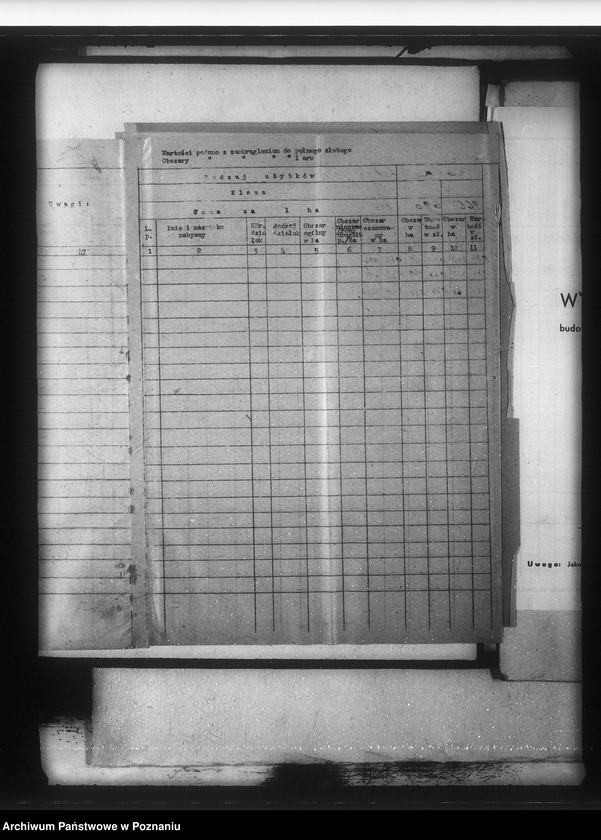 Wartości podano z zaokrągleniem do pełnego złotego
Obszary " " " " 1 aru
Rodzaj użytków
Klasa
Cena za 1 ha
Uwagi:
L.p.
Imię i nazwisko nabywcy
Nr. działek
Rodzaj działek
Obszar ogólny w ha
Obszar
p./ha
Obszar szacowany w ha
Obszar w ha
Wartość w zł.
Obszar w ha
Wartość w zł.
1 2 3 4 5 6 7 8 9 10 11
WY
budo
Uwaga:
Archiwum Państwowe w Poznaniu